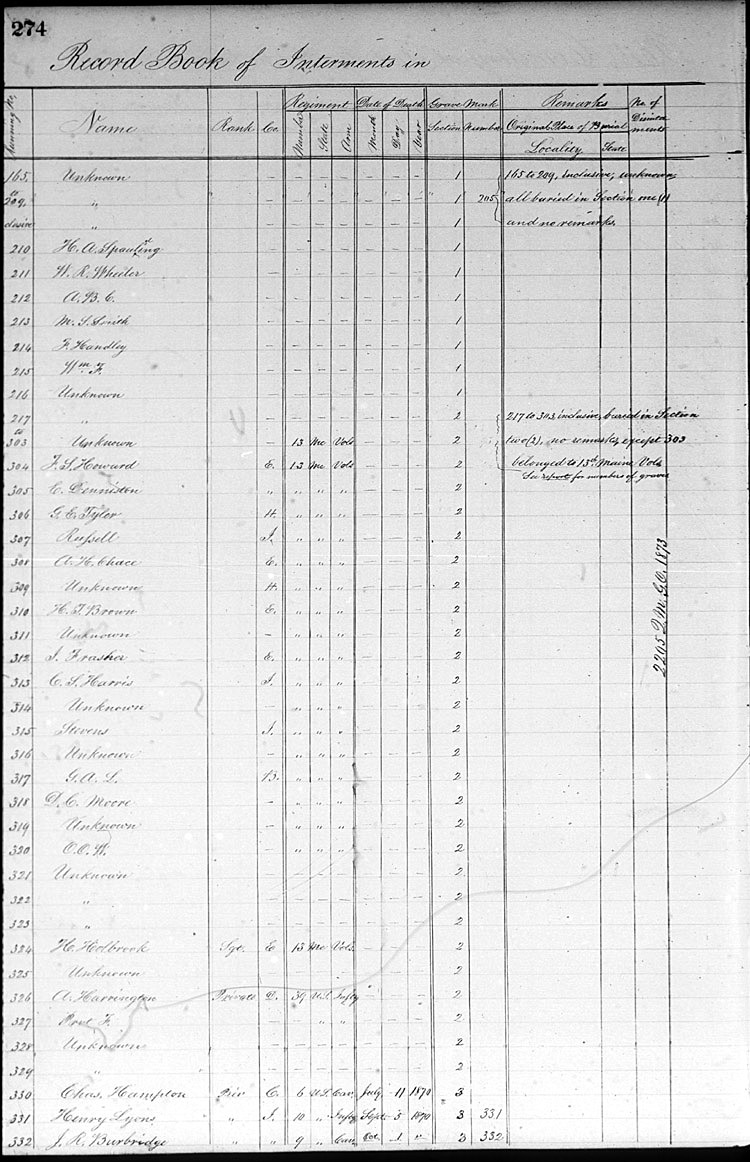 274
Record Book of Interments in
Running No. Name Rank Co. Regiment Date of Death Grave Mark Remarks No. of Disinterments
Number State Arm Month Day Year Section Number Original Place of Burial
Locality State
165. Unknown — — — — — — — 1 165 to 209, inclusive, unknown,
to 209, " — — — — — — — " 1 205 all buried in Section one (1)
" — — — — — — — 1 and no remarks.
210 H. A. Spaulding — — — — — — — 1
211 W. R. Wheeler — — — — — — — 1
212 A. B. C. — — — — — — — 1
213 M. S. Smith — — — — — — — 1
214 F. Handley — — — — — — — 1
215 Wm. F. — — — — — — — 1
216 Unknown — — — — — — — 1
217 " — — — — — — — 2 217 to 303, inclusive, buried in Section
to 303 Unknown — 13 Me Vols — — — 2 two (2), no remarks, except 303
304 F. S. Howard E. 13 Me Vols — — — 2 belonged to 13th Maine Vols
See report for numbers of graves
305 E. Denniston " " " " — — — 2
306 G. E. Tyler H. " " " — — — 2
307 Russell I. " " " — — — 2
308 A. H. Chace E. " " " — — — 2
309 Unknown H. " " " — — — 2
310 H. F. Brown E. " " " — — — 2
311 Unknown — " " " — — — 2
312 I. Frasher E. " " " — — — 2
313 C. S. Harris I. " " " — — — 2
314 Unknown — " " " — — — 2
315 Stevens I. " " " — — — 2
316 Unknown — " " " — — — 2
317 G. A. L. B. " " " — — — 2
318 D. C. Moore — " " " — — — 2
319 Unknown — " " " — — — 2
320 O. O. W. — " " " — — — 2
321 Unknown — — — — — — — 2
322 " — — — — — — — 2
323 " — — — — — — — 2
324 H. Holbrook Sgt. E 13 Me Vols. — — — 2
325 Unknown — — — — — — — 2
326 A. Harrington Private D. 39 U.S. Infty — — — 2
327 F. — — " " — — — 2
328 Unknown — — — — — — — 2
329 " " — — — — — — — 2
330 Chas. Hampton Priv C. 6 U.S. Cav. July 11 1870 3
331 Henry Lyons " I. 10 " Infty Sept. 5 1870 3 331
332 J. R. Burbridge " " 9 " Cav. Oct. 1 " 3 332
2295 Q. M. G. O. 1873